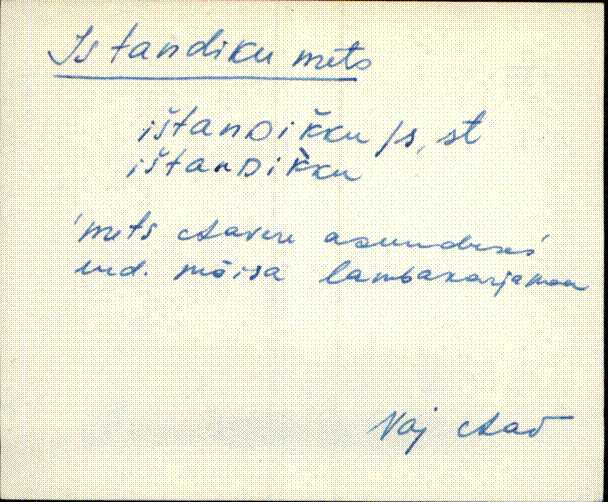 Istandiku mets
ištanDikku/s, st
ištanDi`kku
'mets Aavere asunduses'
end. mõisa lambakarjamaa
Vaj Aav